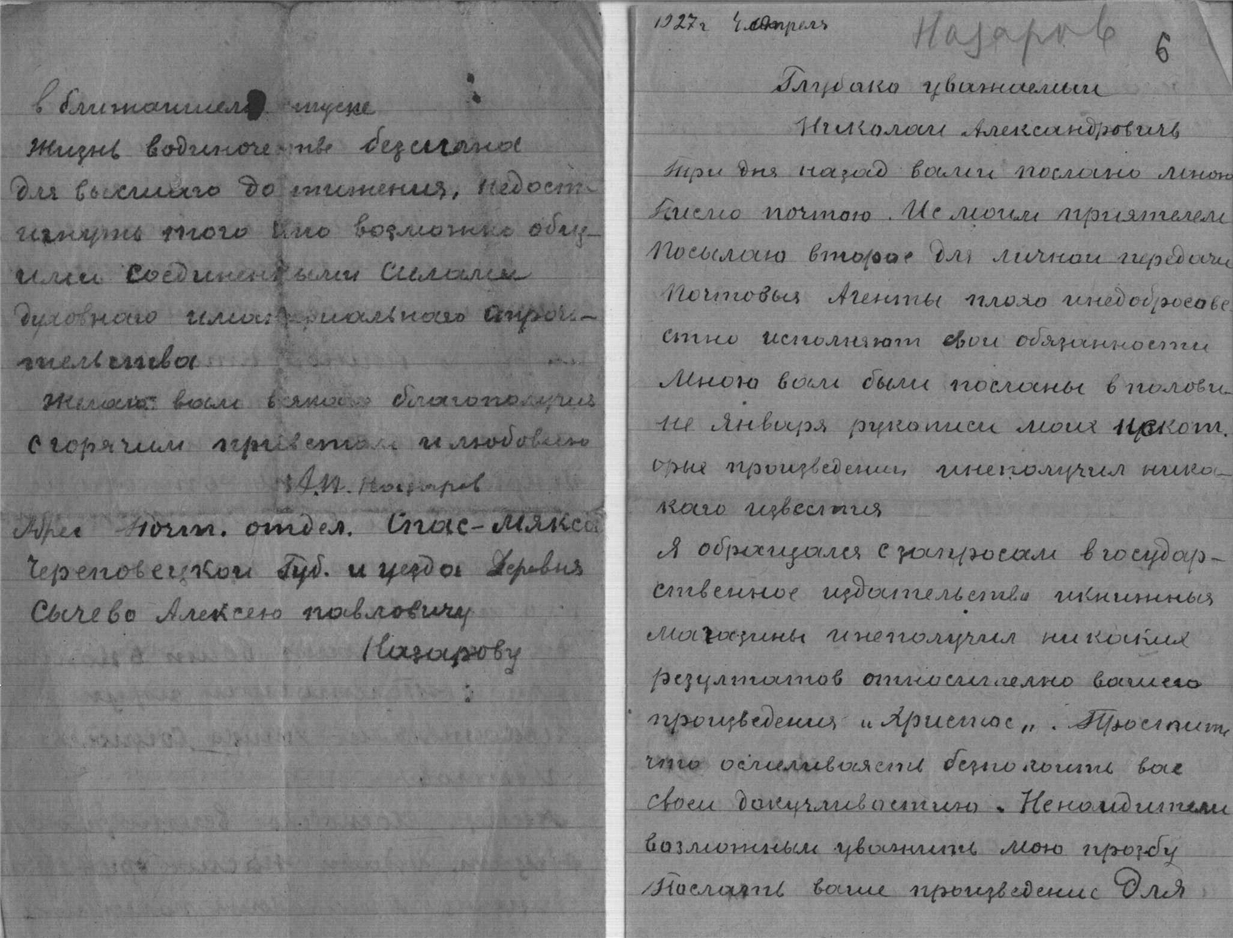 в ближайшем пуске
Жизнь водиночестве безсильна
для высшаго достижения, недост-
игнуть того что возможно общ-
ими соединенными силами
духовнаго иматериальнаго строи-
тельства
Желаю вам всякаго благополучия
сгорячим приветом илюбовию
А.П. Назаров
Адрес Почт. отдел. Спас-Мякса
Череповецкой Губ. и уезда Деревня
Сычево Алексею павловичу
Назарову
1927 г 4 апреля
Назаров
6
Глубоко уважаемыи
Николаи Александровичь
Три дня назад вами послано мною
Писмо почтою. Ис моим приятелем
Посылаю второе для личнои передачи
Почтовыя Агенты плохо инедобросове
стно исполняют свои обязанности
Мною вам были посланы вполови-
не Января рукописи моих некот.
орых произведении инеполучил ника-
каго известия
Я обращался сзапросам вгосудар-
ственное издательство икнижныя
магазины инеполучил никаких
резултатов относително вашего
произведения „Христос„. Простите
что осмеливаясть безпокоить вас
своеи докучливостию. Ненаидители
возможным уважить мою прозбу
Послать ваше произведение Для